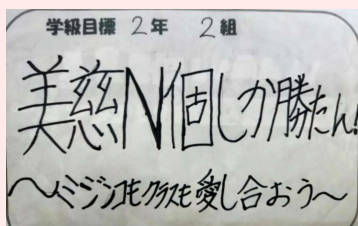 学級目標 2年 2組
美慈N個しか勝たん!
〜ミジンコもクラスも愛し合おう〜